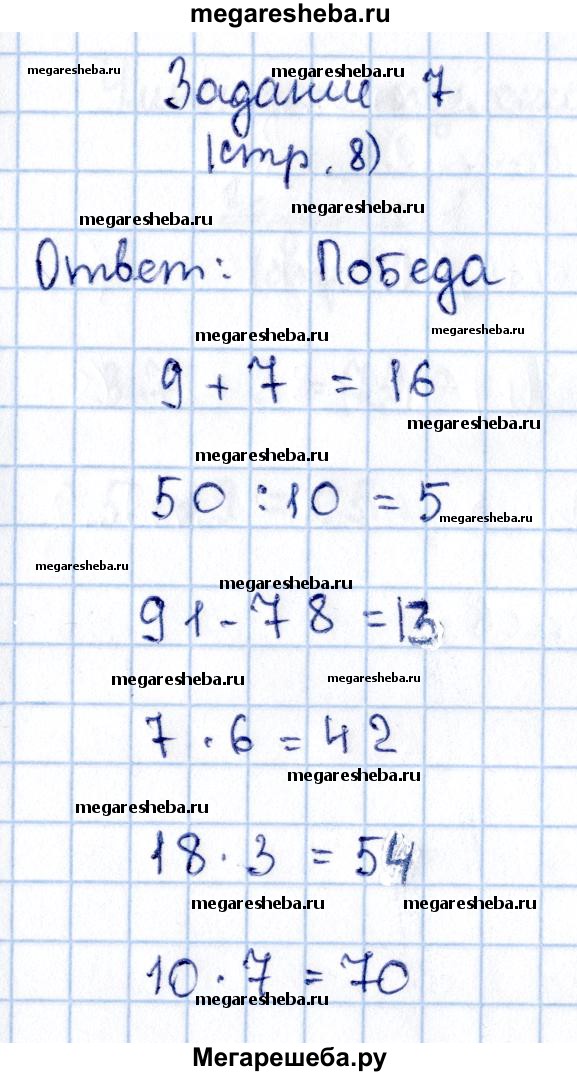 megaresheba.ru
megaresheba.ru megaresheba.ru
Задание 7
(стр. 8)
megaresheba.ru megaresheba.ru
Ответ: Победа
megaresheba.ru megaresheba.ru
9 + 7 = 16
megaresheba.ru
megaresheba.ru
50 : 10 = 5
megaresheba.ru
megaresheba.ru megaresheba.ru
91 - 78 = 13
megaresheba.ru megaresheba.ru
7 · 6 = 42
megaresheba.ru
megaresheba.ru
18 · 3 = 54
megaresheba.ru megaresheba.ru
10 · 7 = 70
megaresheba.ru
Мегарешеба.ру